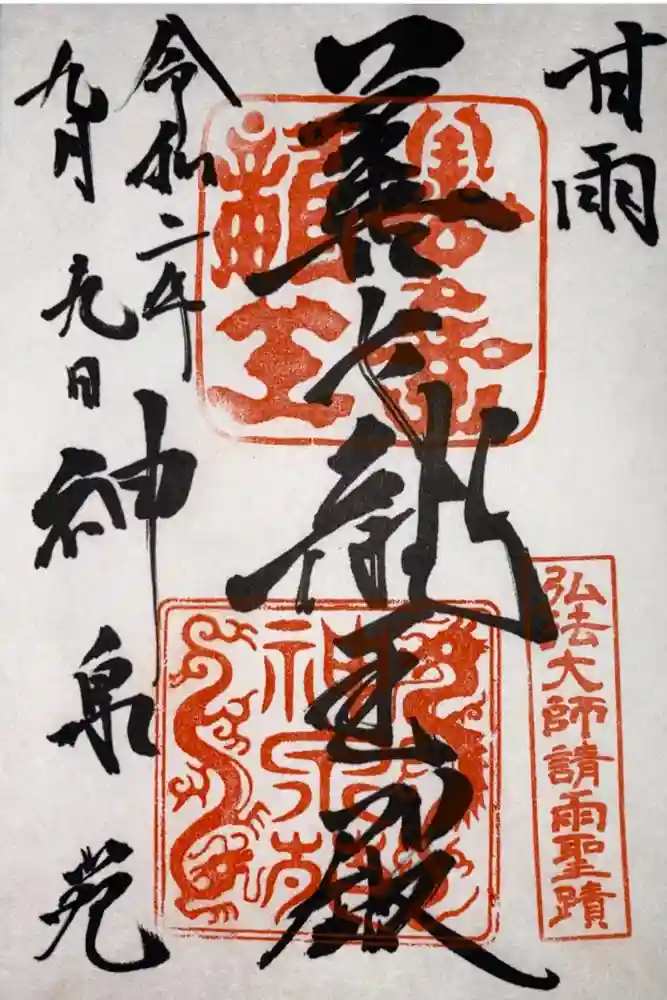 甘雨
弘法大師請雨聖蹟
善女龍王殿
善女
龍王
神泉苑
令和二年
九月九日
神泉苑